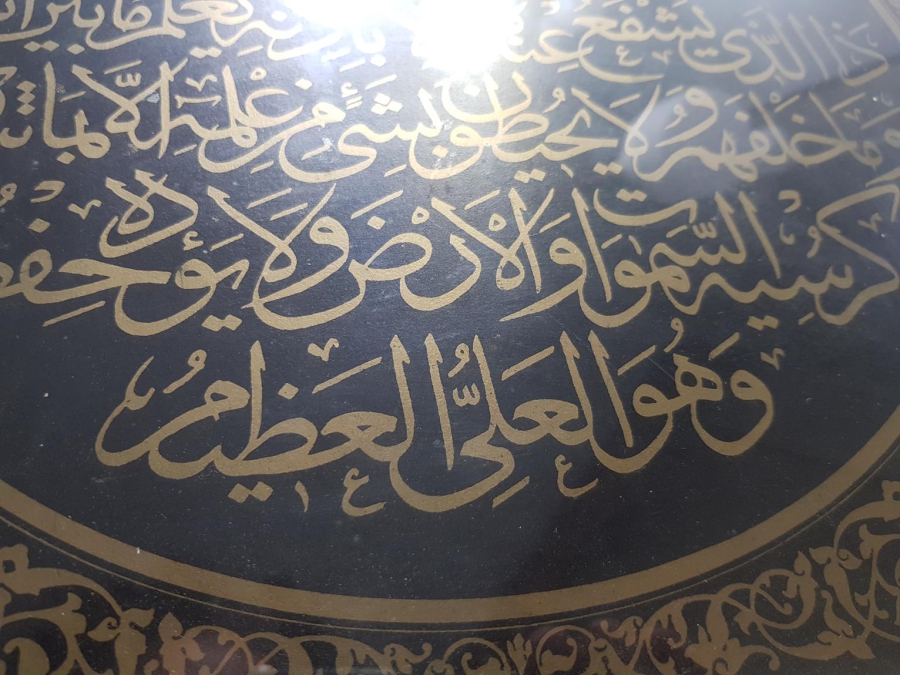 ذا الذي يشفع عنده إلا بإذنه يعلم ما بين
وما خلفهم ولا يحيطون بشيء من علمه إلا بما
كرسيه السموات والأرض ولا يؤده حفظ
وهو العلي العظيم